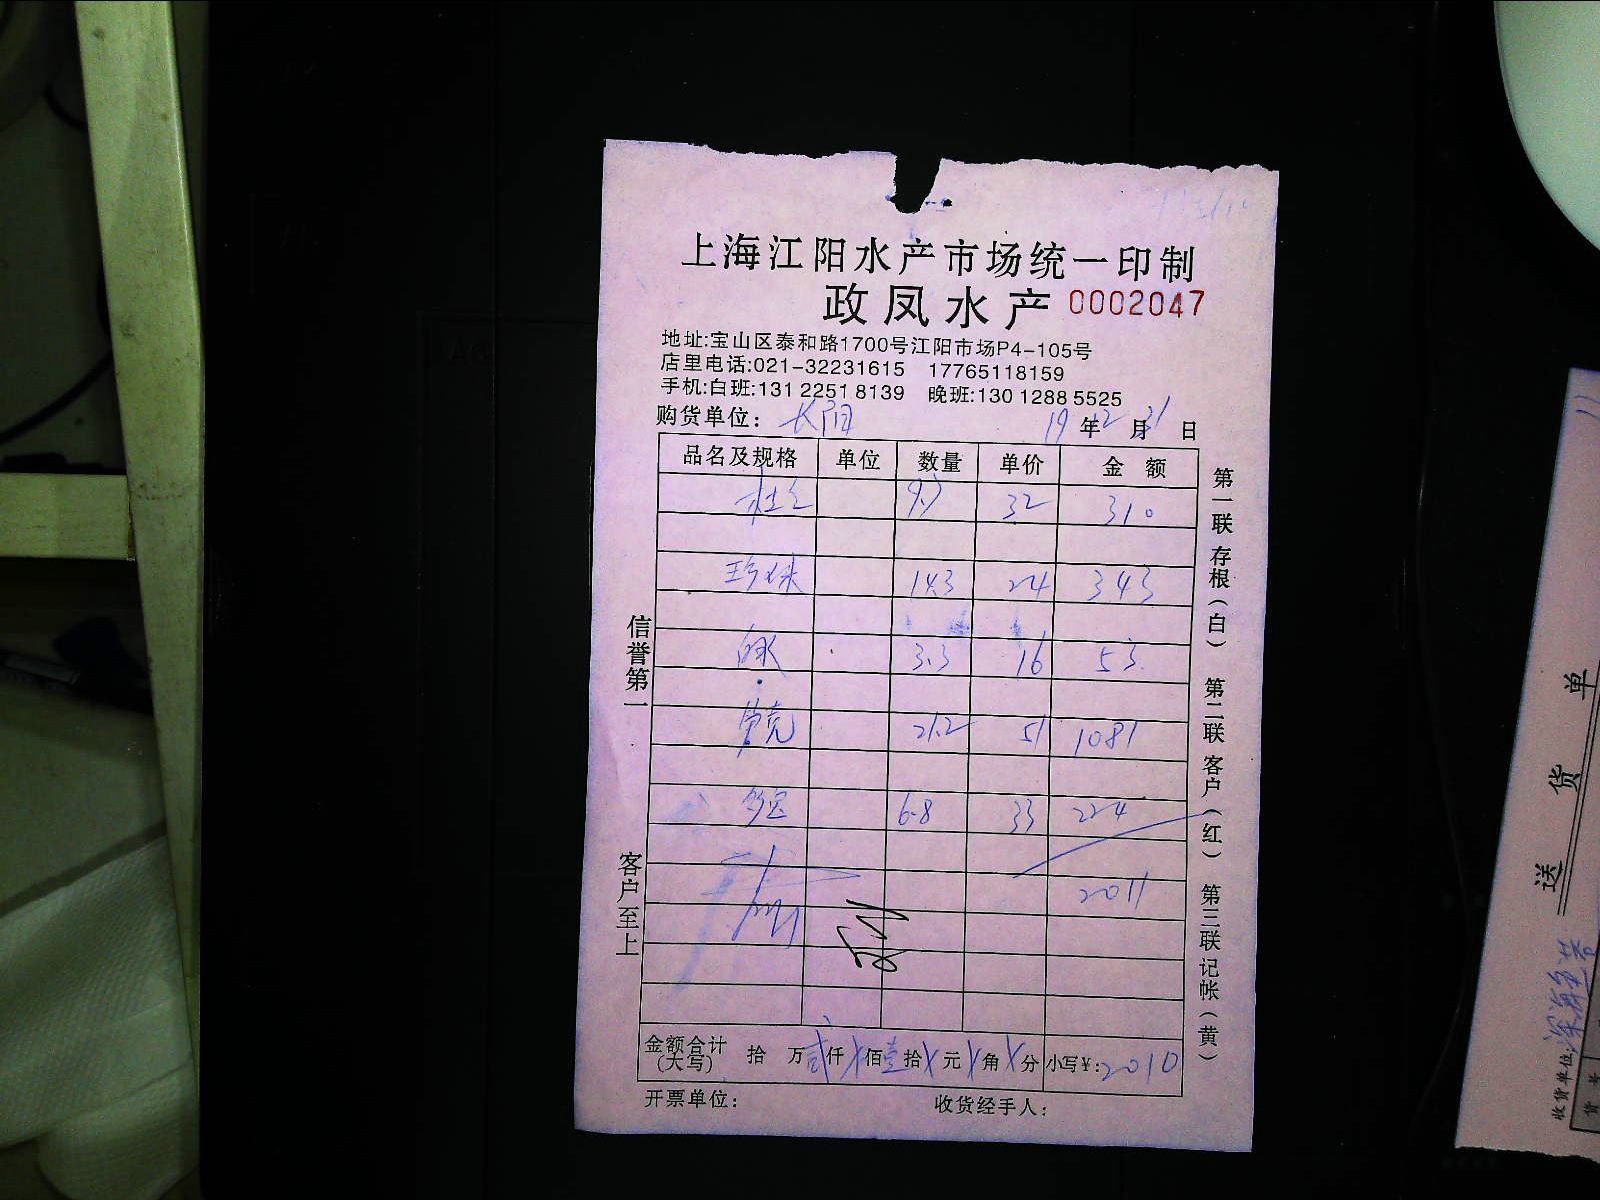 上海江阳水产市场统一印制
政凤水产 0002047
地址:宝山区泰和路1700号江阳市场P4-105号
店里电话:021-32231615 17765118159
手机:白班:131 2251 8139 晚班:130 1288 5525
购货单位: 长阳 19年12月31日
品名及规格 单位 数量 单价 金额
9.7 32 310
珍珠 14.3 24 343
3.3 16 53
21.2 51 1081
多宝 6.8 33 224
2011
金额合计(大写) 拾 万贰仟X佰壹拾X元X角X分 小写¥:2010
开票单位: 收货经手人:
信誉第一
客户至上
第一联存根(白) 第二联客户(红) 第三联记帐(黄)
送货单
收货单位:
货号